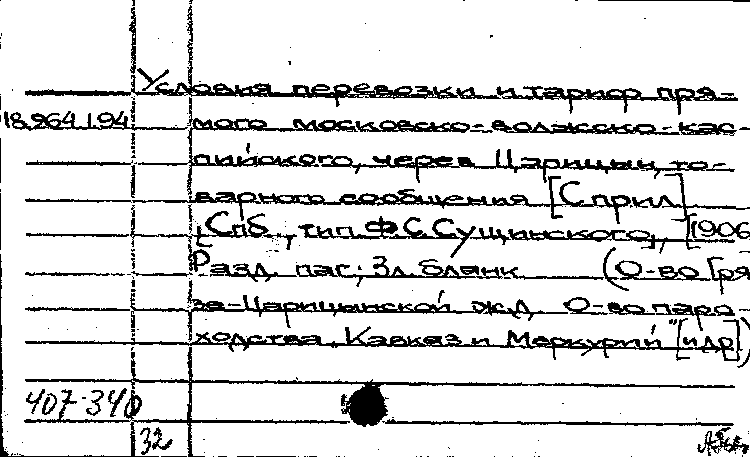 Условия перевозки и тариф пря-
18.964.1.94 мого московско-волжско-кас-
пийского, через Царицын, то-
варного сообщения [С прил]
[Спб., тип. Ф.С. Сущинского], [1906
Разд. паг.; 3л. бланк (О-во Гря
зе-Царицынской ж.д. О-во паро-
ходства "Кавказ и Меркурий" [и др])
407-340
32